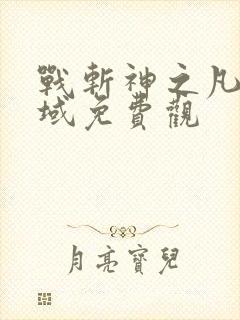 戰斬神之凡
域免費觀
月亮寶兒